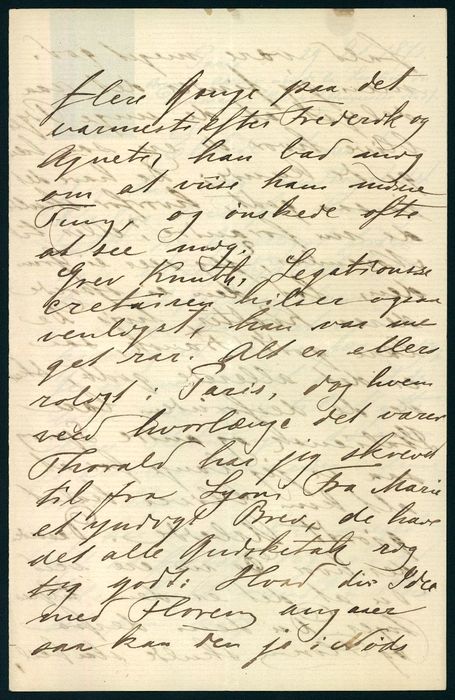 flere Gange paa det
varmeste efter Frederik og
Agnete, han bad mig
om at vise ham mine
Ting, og ønskede ofte
at see mig.
Grev Knuth, Legationsse
cretairen hilser ogsaa
venligst, han var me
get rar. Alt er ellers
roligt i Paris, dog hvem
veed hvorlænge det varer
Thorald har jeg skrevet
til fra Lyon. Fra Marie
et yndigt Brev, de have
det alle Gudskelak
godt: Hvad din Idee
med Floren angaaer
saa kan den jo i Nøds